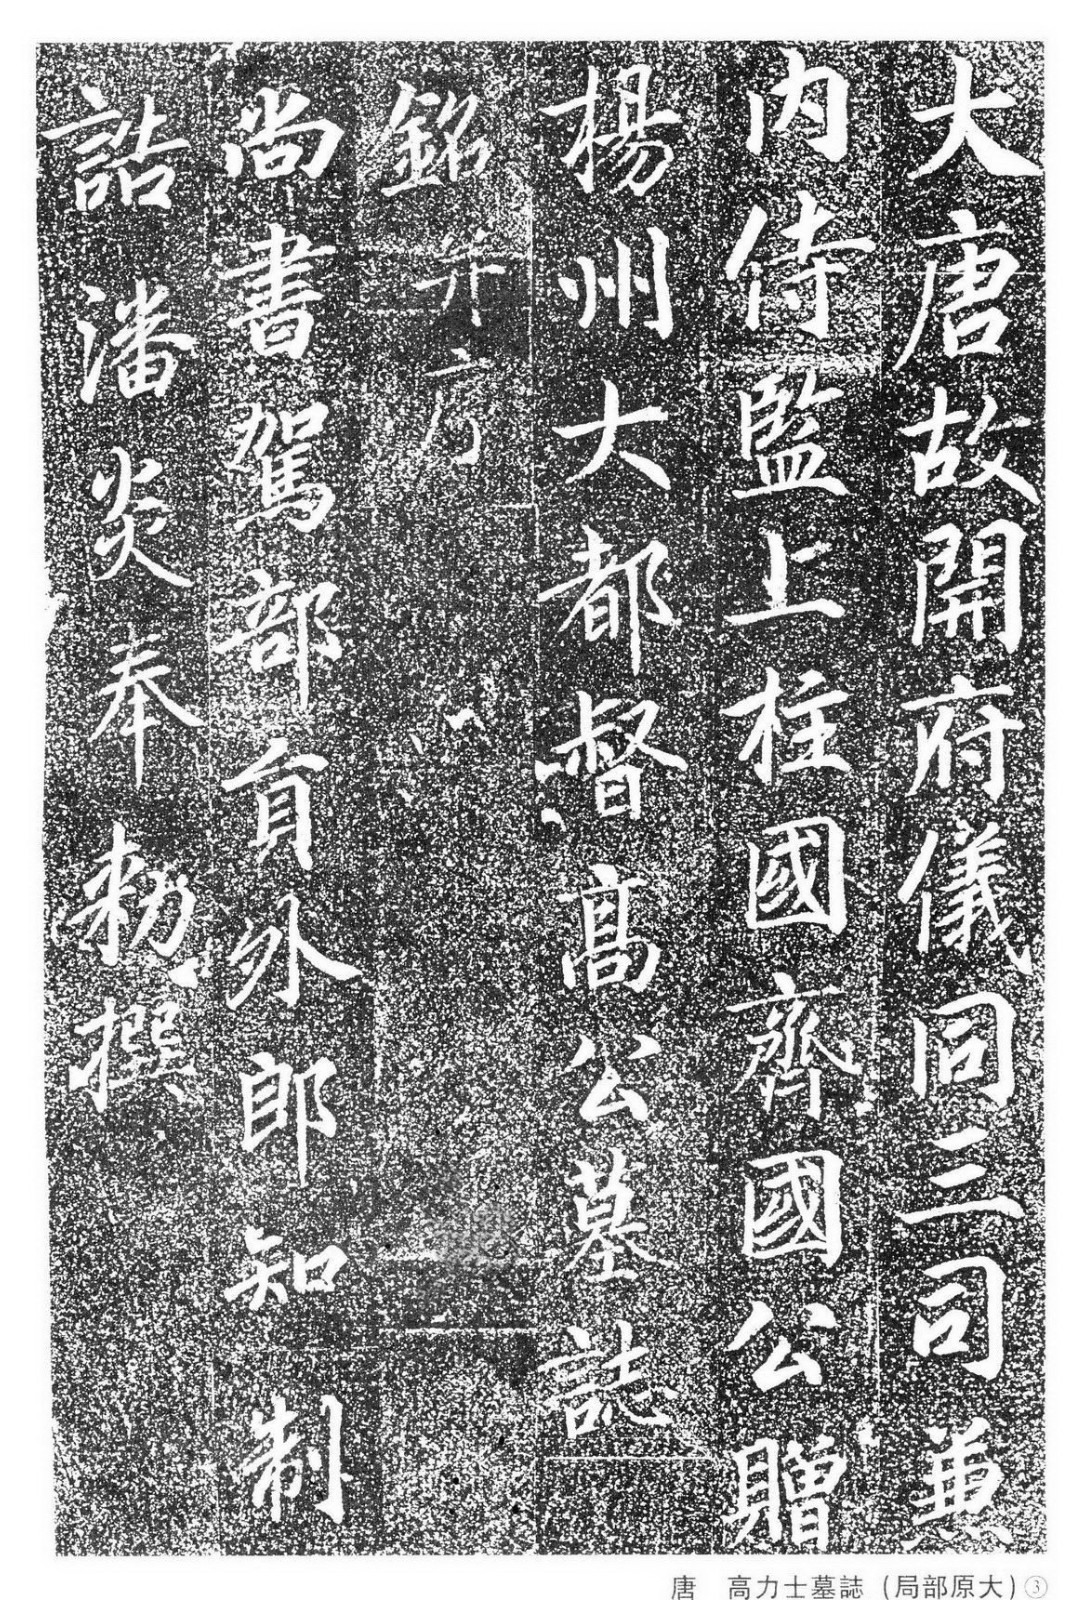 大唐故開府儀同三司兼
内侍監上柱國齊國公贈
楊州大都督髙公墓誌
銘并序
尚書駕部貟外郎知制
誥潘炎奉勑撰
唐　高力士墓誌（局部原大）③